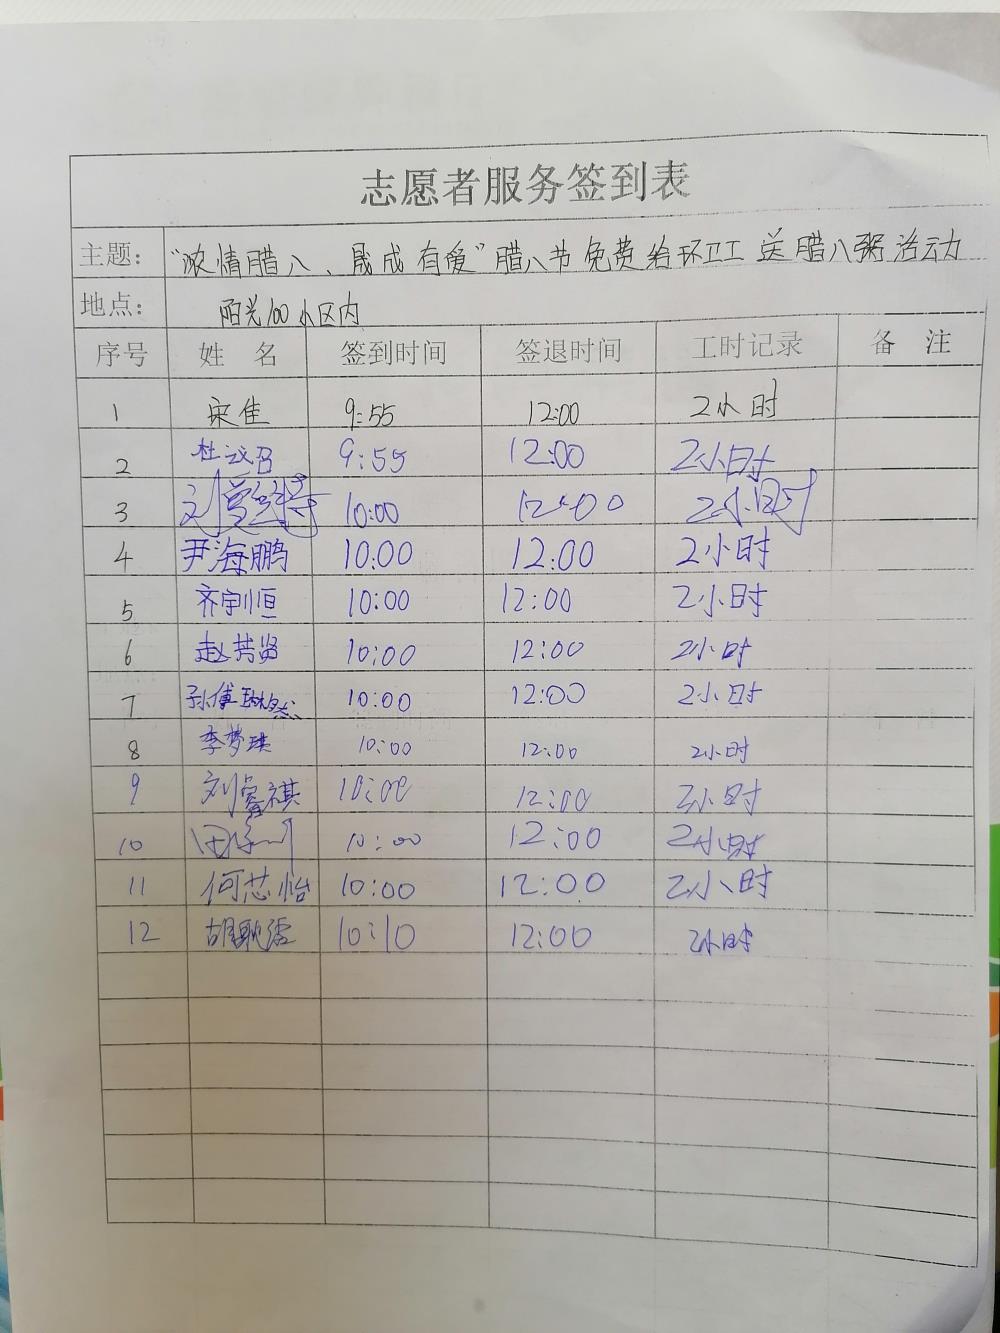 志愿者服务签到表
主题： “浓情腊八、晟成有爱”腊八节免费给环卫工送腊八粥活动
地点： 阳光100小区内
序号 姓 名 签到时间 签退时间 工时记录 备 注
1 宋佳 9:55 12:00 2小时
2 杜 9:55 12:00 2小时
3 刘 10:00 12:00 2小时
4 尹海鹏 10:00 12:00 2小时
5 齐宇恒 10:00 12:00 2小时
6 赵芳贤 10:00 12:00 2小时
7 孙傅 10:00 12:00 2小时
8 李梦琪 10:00 12:00 2小时
9 刘睿祺 10:00 12:00 2小时
10 田 10:00 12:00 2小时
11 何芯怡 10:00 12:00 2小时
12 胡 10:10 12:00 2小时